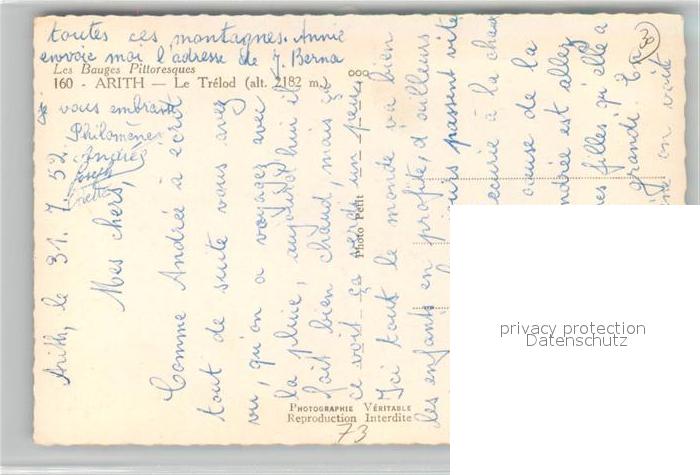 toutes ces montagnes. Annie
envoie moi l'adresse de J. Berna
Les Bauges Pittoresques
160 - ARITH — Le Trélod (alt. 2182 m.)
je vous embrasse
Philomène
Andrée
Arith, le 31. 7. 52
Mes chers,
Comme Andrée a écrit
tout de suite vous avez
vu, qu'on a voyagé avec
la pluie, aujourd'hui il
fait bien chaud, mais ça
ce voit ça verdi un peu,
Ici tout le monde va bien
les enfants en profite, d'ailleurs
passent vite
écurie à la chaux
cause de la
Andrée est allée
filles qu'elle a
grandi. Et
on voit
Photo Petit
PHOTOGRAPHIE VÉRITABLE
Reproduction Interdite
73
privacy protection
Datenschutz